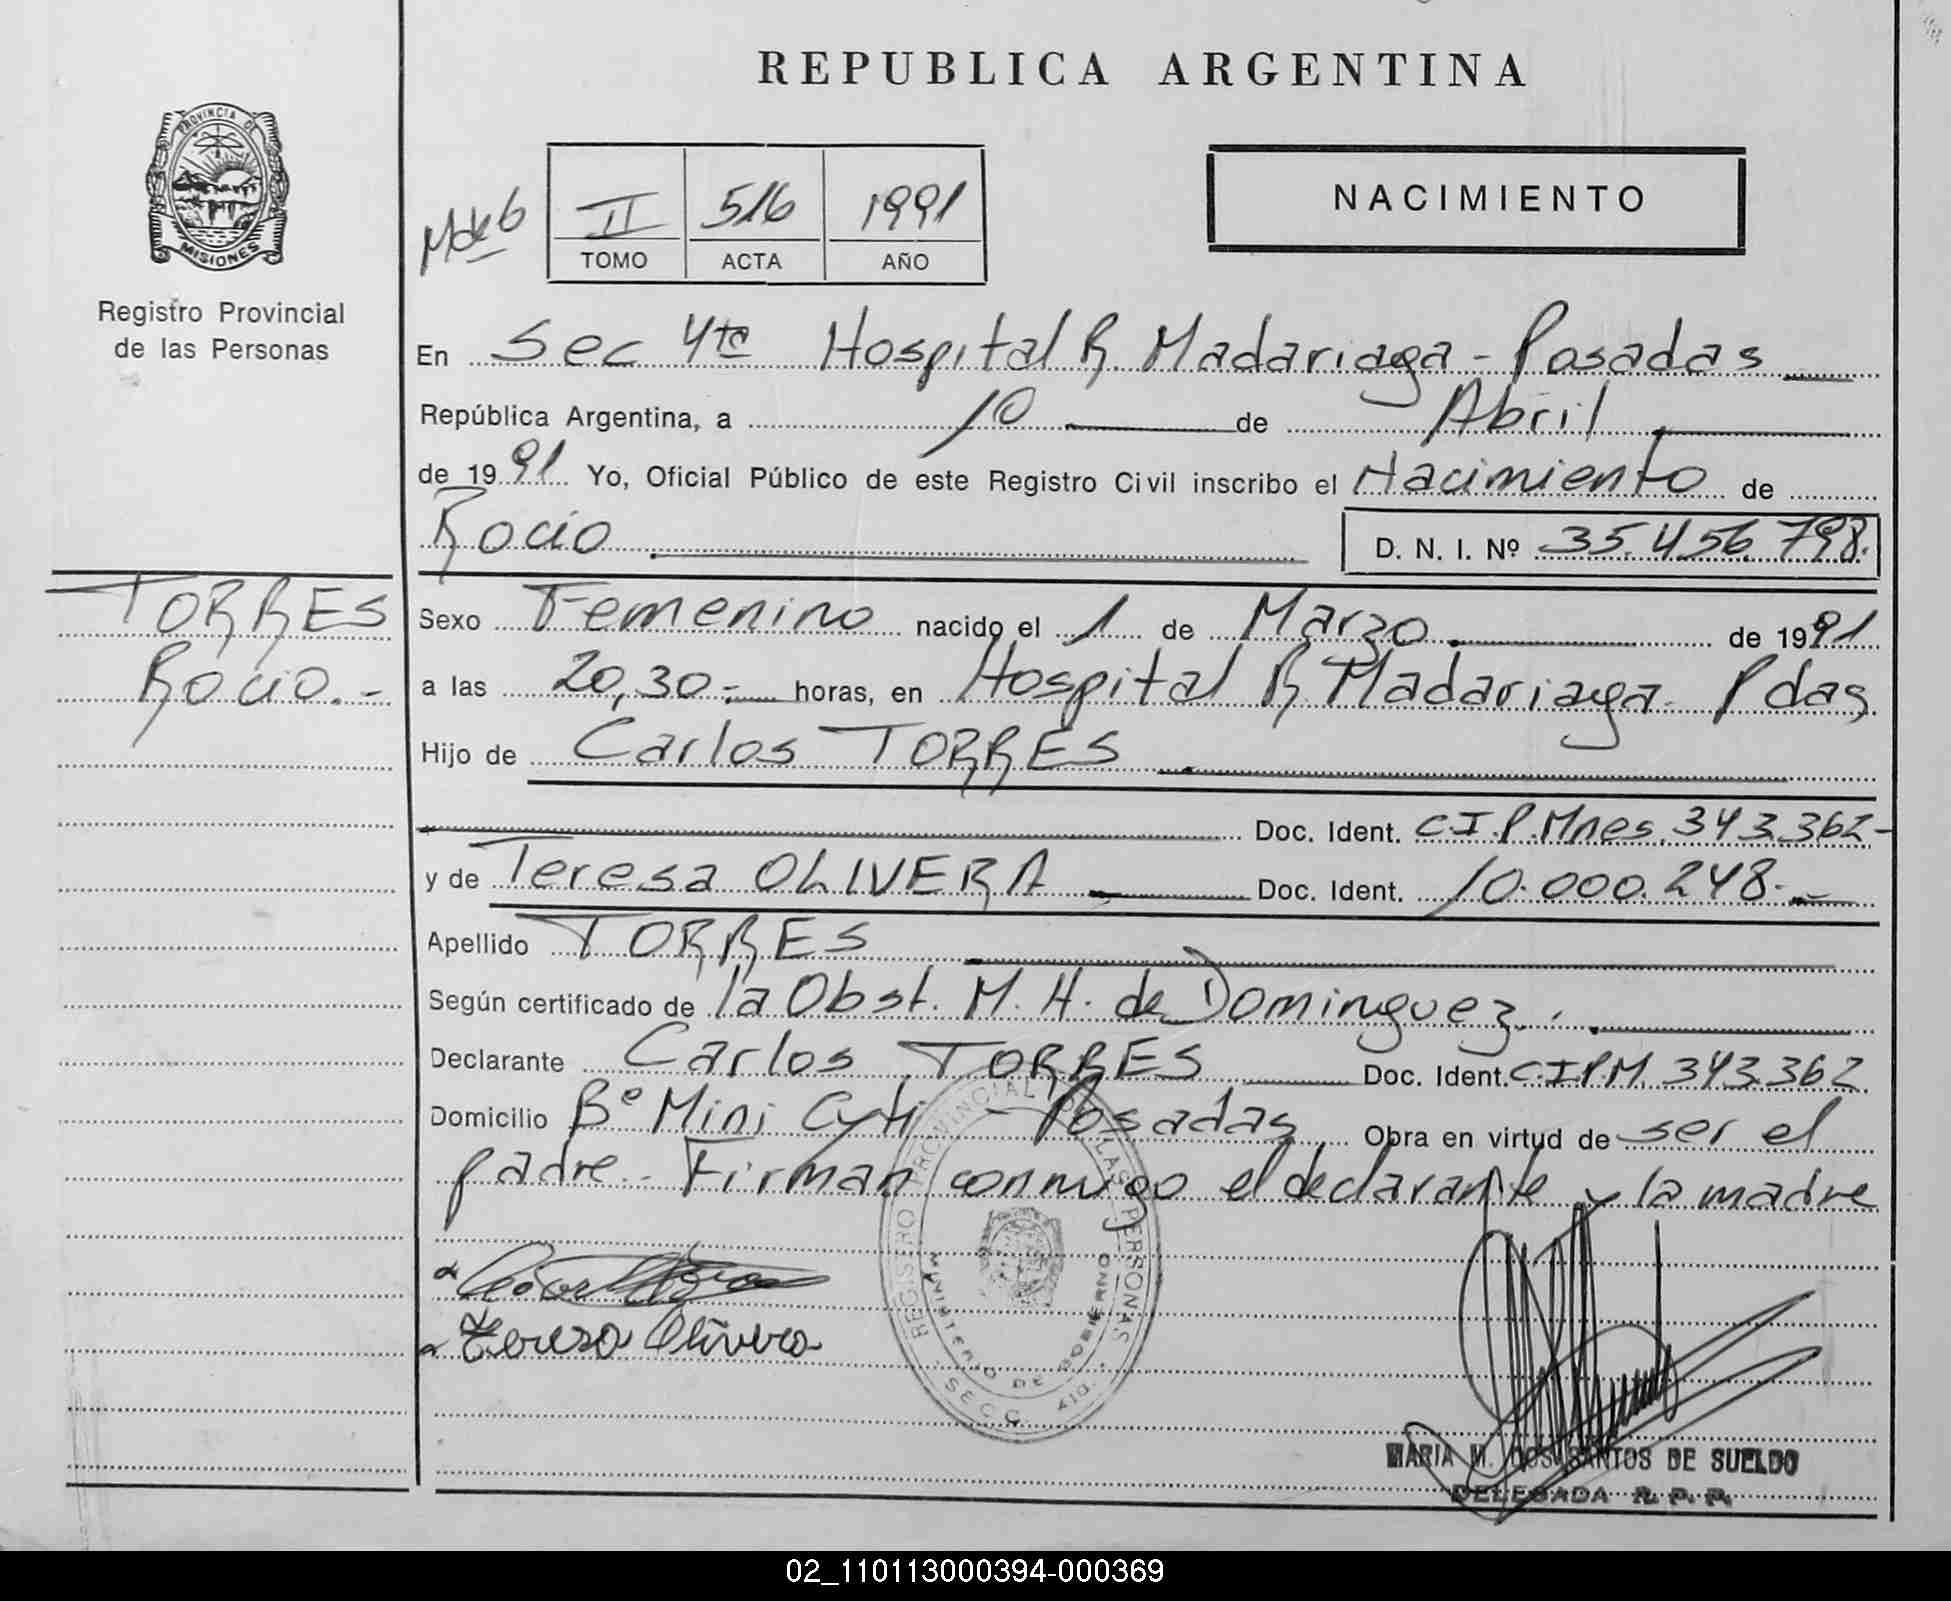 REPUBLICA ARGENTINA
PROVINCIA DE
MISIONES
Registro Provincial
de las Personas
II 516 1991
TOMO ACTA AÑO
NACIMIENTO
En Sec 4ta Hospital R. Madariaga - Posadas
República Argentina, a 10 de Abril
de 1991 Yo, Oficial Público de este Registro Civil inscribo el Nacimiento de
Rocio D. N. I. Nº 35.456.798.
TORRES
Rocio.-
Sexo Femenino nacido el 1 de Marzo de 1991
a las 20,30.- horas, en Hospital R Madariaga - Pdas
Hijo de Carlos TORRES
Doc. Ident. C.I.P. Mnes. 343.362-
y de Teresa OLIVERA Doc. Ident. 10.000.248.-
Apellido TORRES
Según certificado de la Obst. M. H. de Dominguez.
Declarante Carlos TORRES Doc. Ident. CIPM. 343.362
Domicilio Bº Mini Cyti - Posadas Obra en virtud de ser el
padre.- Firman conmigo el declarante y la madre
Teresa Olivera
REGISTRO PROVINCIAL DE LAS PERSONAS
MINISTERIO DE GOBIERNO
SECC. 4ta.
MARIA M. DOS SANTOS DE SUELDO
DELEGADA R. P. P.
02_110113000394-000369